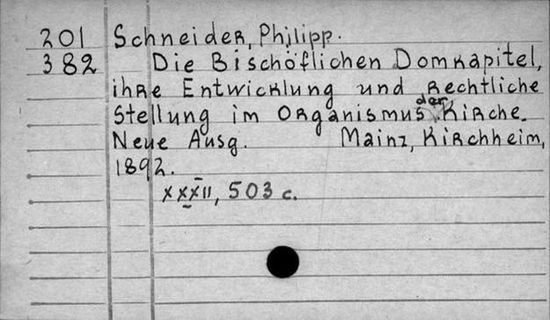 201 Schneider, Philipp.
382 Die Bischöflichen Domkapitel,
ihre Entwicklung und rechtliche
Stellung im Organismus der Kirche.
Neue Ausg. Mainz, Kirchheim,
1892.
XXXII, 503 c.